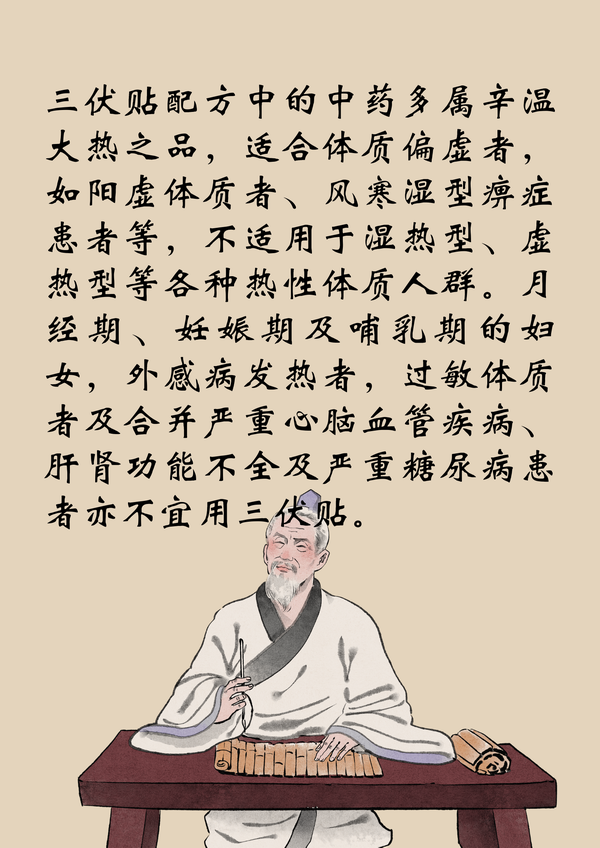 三伏贴配方中的中药多属辛温
大热之品，适合体质偏虚者，
如阳虚体质者、风寒湿型痹症
患者等，不适用于湿热型、虚
热型等各种热性体质人群。月
经期、妊娠期及哺乳期的妇
女，外感病发热者，过敏体质
者及合并严重心脑血管疾病、
肝肾功能不全及严重糖尿病患
者亦不宜用三伏贴。